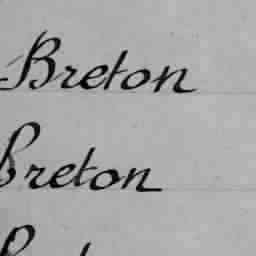 Breton
Breton